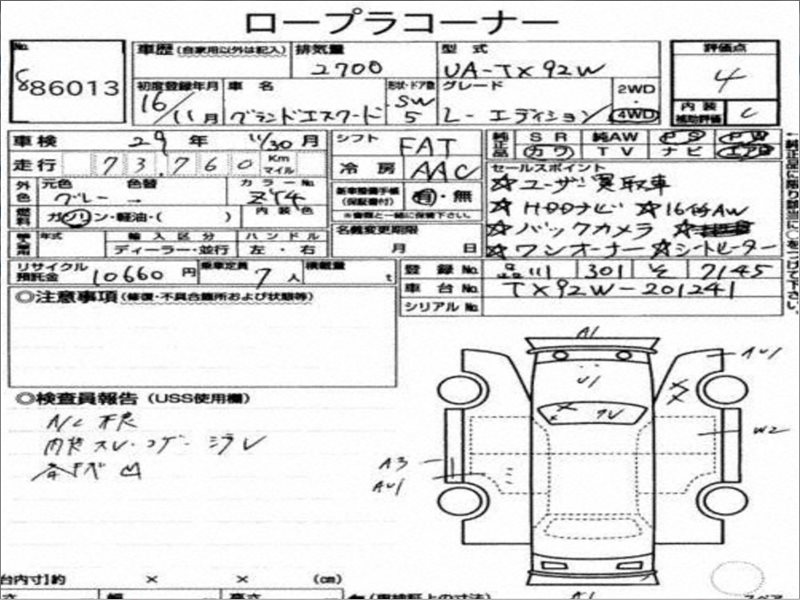 ロープラコーナー
No. 686013
車歴 (自家用以外は記入) 排気量 2700 型式 UA-TX92W 評価点 4
初度登録年月 16/11月 車名 グランドエスクード 形状・ドア数 SW 5 グレード L-エディション 2WD 4WD 内装補助評価 C
車検 29年 11/30月 シフト FAT 純正品 SR 純AW PS PW
走行 73,760 Km マイル 冷房 AAC カワ TV ナビ エアB
外色 元色 グレー 色替 → カラーNo. ZY4 新車整備手帳 (保証書付) 有・無 ※書類と一緒に保管下さい。
セールスポイント
☆ユーザー買取車
☆HDDナビ ☆16インチAW
☆バックカメラ
☆ワンオーナー ☆シートヒーター
燃料 ガソリン・軽油・( ) 内装色
年式 輸入区分 ディーラー・並行 ハンドル 左・右 名義変更期限 月 日
リサイクル預託金 10660円 乗車定員 7人 積載量 t 登録No. 301 7145
車台No. TX92W-201241
シリアルNo.
◎注意事項 (修復・不具合箇所および状態等)
◎検査員報告 (USS使用欄)
A/C 不良
内装 スレ・コゲ
A1
AU1
U1
W2
A3
AU1
A1
台内寸】約 × × (cm)
幅 高さ
スペア
←純正品に限り該当に○をつけて下さい。